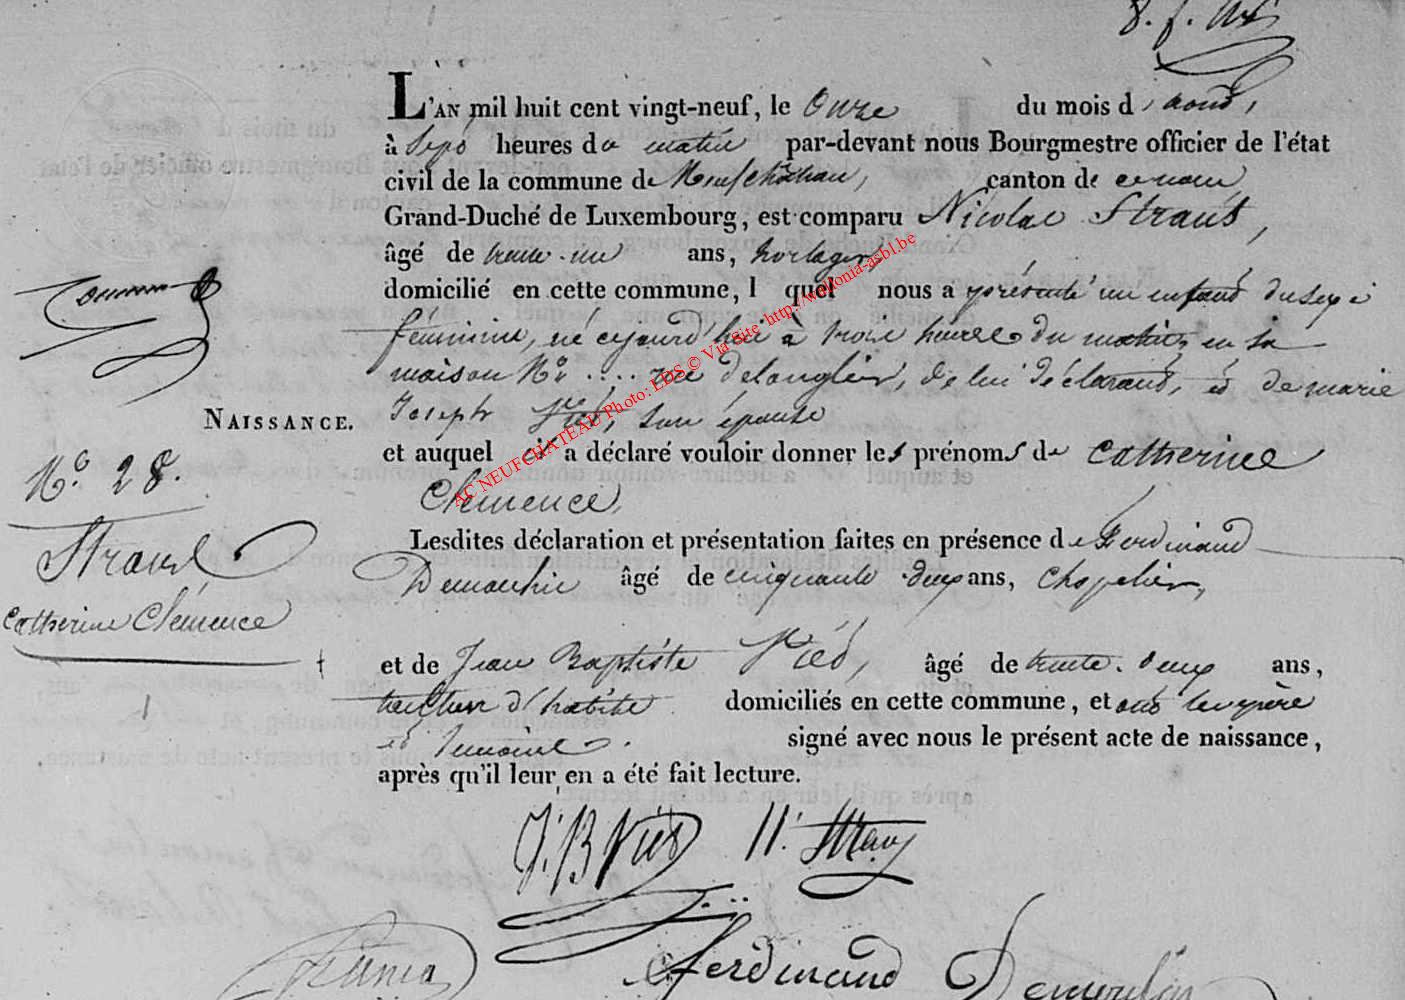 L'AN mil huit cent vingt-neuf, le Onze du mois d'aout,
à Sept heures du matin par-devant nous Bourgmestre officier de l'état
civil de la commune de Neufchâteau, canton de ce nom,
Grand-Duché de Luxembourg, est comparu Nicolas Straus,
âgé de trente-un ans, horloger,
domicilié en cette commune, lequel nous a présenté un enfant du sexe
féminin, né cejourd'hui à trois heures du matin, en sa
maison No .... rue de lui déclarant, et de marie
Joseph son épouse
et auquel il a déclaré vouloir donner les prénoms de Catherine
Clémence,
NAISSANCE.
No. 28.
Straus
Catherine Clémence
Lesdites déclaration et présentation faites en présence de Ferdinand
âgé de cinquante deux ans, Chapelier,
et de Jean Baptiste âgé de trente-deux ans,
tailleur d'habits domiciliés en cette commune, et ont les père
et témoins signé avec nous le présent acte de naissance,
après qu'il leur en a été fait lecture.
Ferdinand
AC NEUFCHATEAU Photo: EDS © Via Site http://wallonia-asbl.be